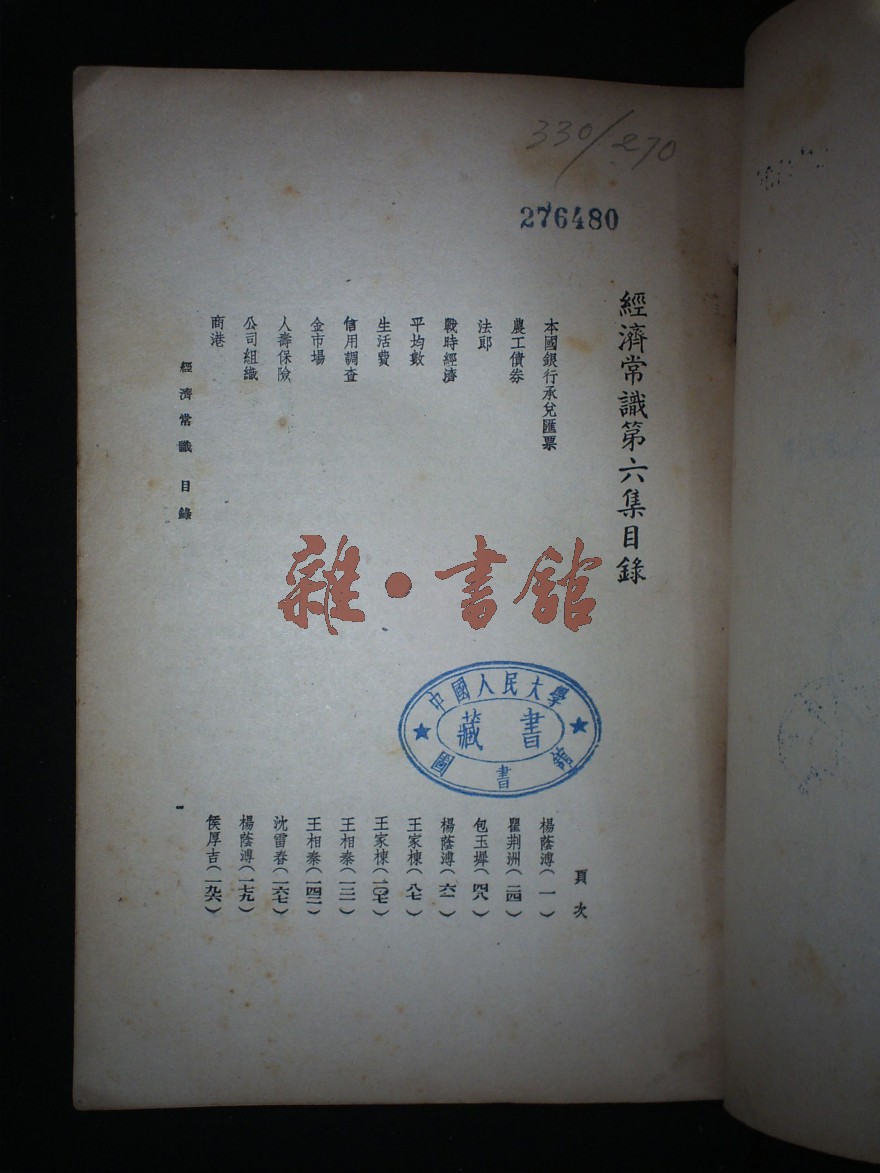 330/270
276480
經濟常識第六集目錄
頁次
本國銀行承兌匯票 楊蔭溥(一)
農工債券 瞿荆洲(二四)
法郎 包玉墀(四八)
戰時經濟 楊蔭溥(六一)
平均數 王家棟(八七)
生活費 王家棟(一〇七)
信用調查 王相秦(一三一)
金市場 王相秦(一四二)
人壽保險 沈雷春(一六七)
公司組織 楊蔭溥(一七九)
商港 侯厚吉(一九六)
經濟常識 目錄
雜·書館
中國人民大學
藏書
圖書館